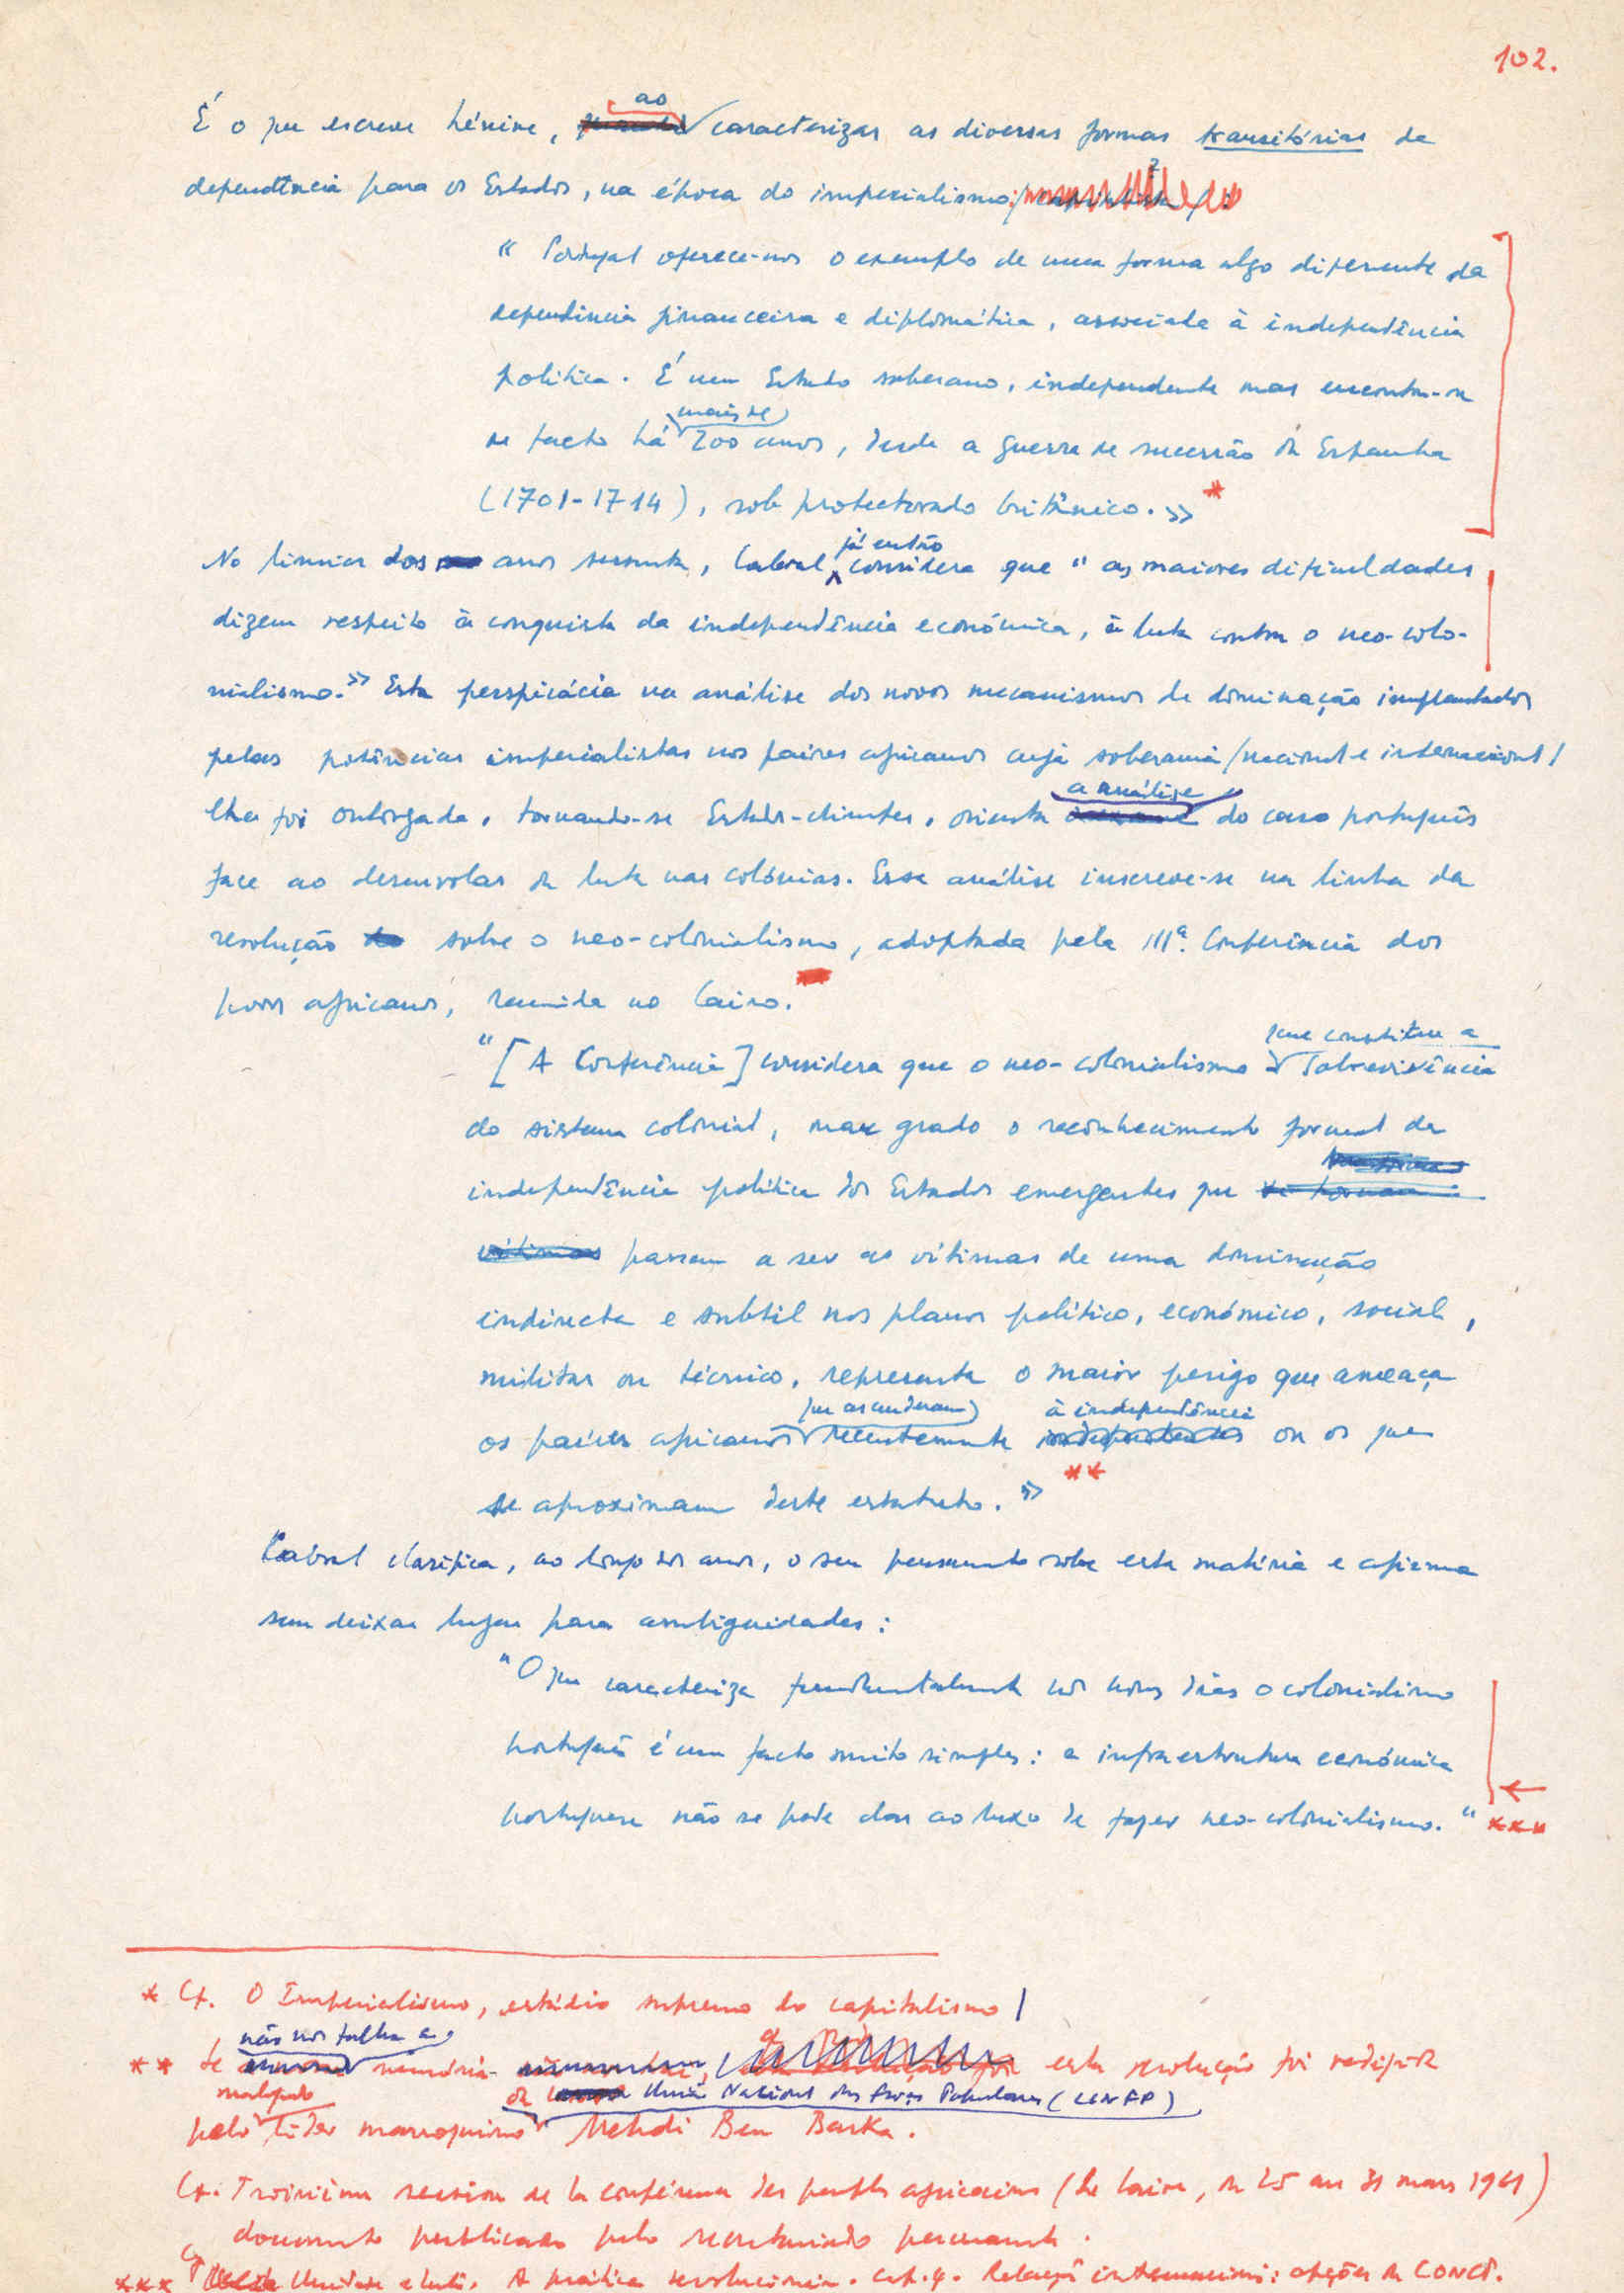 102.
É o que escreve Lénine, ao caracterizar as diversas formas transitórias de
dependência para os Estados, na época do imperialismo:
« Portugal oferece-nos o exemplo de uma forma algo diferente da
dependência financeira e diplomática, associada à independência
política. É um Estado soberano, independente mas encontra-se
de facto há mais de 200 anos, desde a guerra de sucessão da Espanha
(1701-1714), sob protectorado britânico. » *
No limiar dos anos sessenta, Cabral já então considera que " as maiores dificuldades
dizem respeito à conquista da independência económica, à luta contra o neo-colo-
nialismo. » Esta perspicácia na análise dos novos mecanismos de dominação implantados
pelas potências imperialistas nos países africanos cuja soberania /nacional e internacional/
lhes foi outorgada, tornando-se Estados-clientes, orienta a análise do caso português
face ao desenrolar da luta nas colónias. Essa análise inscreve-se na linha da
resolução sobre o neo-colonialismo, adoptada pela IIIª. Conferência dos
povos africanos, reunida no Cairo.
" [A Conferência] considera que o neo-colonialismo que constitue a sobrevivência
do sistema colonial, mau grado o reconhecimento formal da
independência política dos Estados emergentes que
passam a ser as vítimas de uma dominação
indirecta e subtil nos planos político, económico, social,
militar ou técnico, representa o maior perigo que ameaça
os países africanos que ascenderam recentemente à independência ou os que
se aproximam deste estatuto. » **
Cabral clarifica, ao longo dos anos, o seu pensamento sobre esta matéria e afirma
sem deixar lugar para ambiguidades :
" O que caracteriza fundamentalmente nos nossos dias o colonialismo
português é um facto muito simples : a infraestrutura económica
portuguesa não se pode dar ao luxo de fazer neo-colonialismo. " ***
* Cf. O Imperialismo, estádio supremo do capitalismo
** Se não nos falha a memória, esta resolução foi redigida
pelo malogrado líder marroquino da União Nacional das Forças Populares (UNFP) Mehdi Ben Barka.
Cf. Troisième session de la conférence des peuples africains (Le Caire, du 25 au 31 mars 1961)
documento publicado pelo secretariado permanente.
*** Cf. Unidade e luta. A prática revolucionária. Cap. 4. Relações internacionais: opções da CONCP.